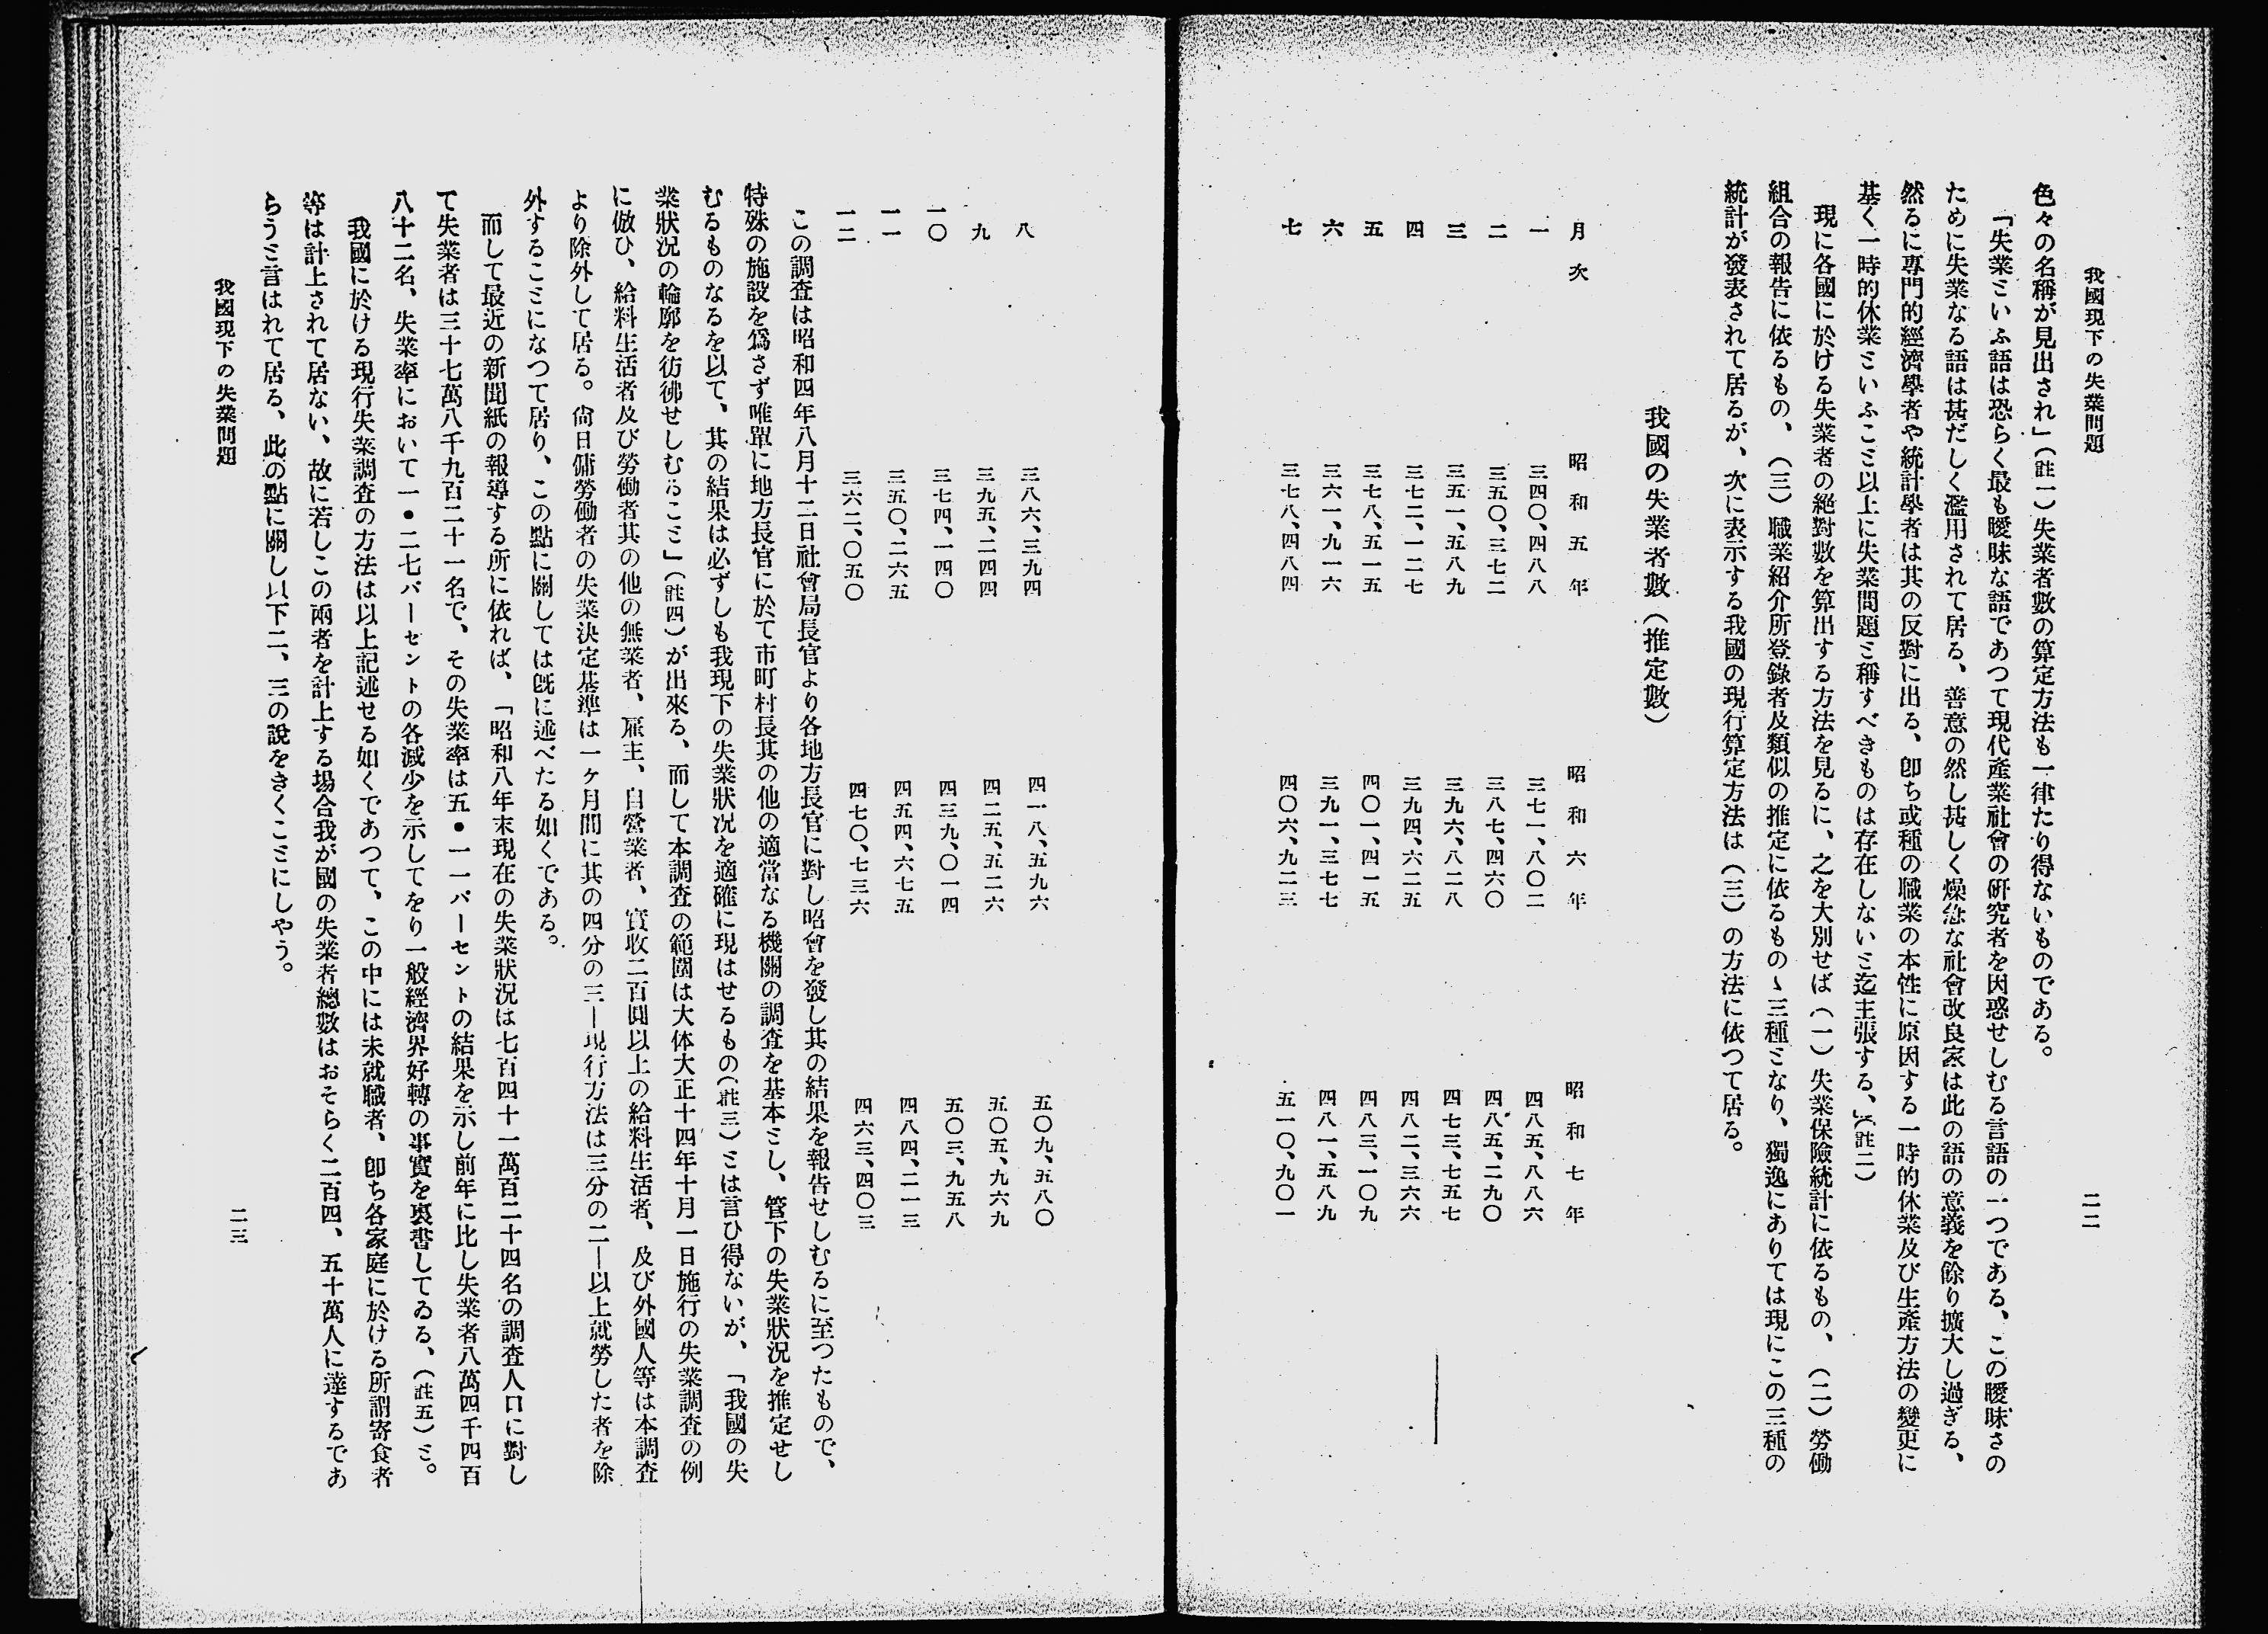 我國現下の失業問題
二二
色々の名稱が見出され」(註一)失業者數の算定方法も一律たり得ないものである。
「失業ミいふ語は恐らく最も曖昧な語であつて現代產業社會の研究者を因惑せしむる言語の一つである、この曖昧さの
ために失業なる語は甚だしく濫用されて居る、善意の然し甚しく燥急な社會改良家は此の語の意義を餘り擴大し過ぎる、
然るに專門的經濟學者や統計學者は其の反對に出る、卽ち或種の職業の本性に原因する一時的休業及び生產方法の變更に
基く一時的休業ミいふこミ以上に失業問題ミ稱すべきものは存在しないミ迄主張する、」(註二)
現に各國に於ける失業者の絕對數を算出する方法を見るに、之を大別せば(一)失業保險統計に依るもの、(二)勞働
組合の報告に依るもの、(三)職業紹介所登錄者及類似の推定に依るものゝ三種ミなり、獨逸にありては現にこの三種の
統計が發表されて居るが、次に表示する我國の現行算定方法は(三)の方法に依つて居る。
我國の失業者數(推定數)
月次 昭和五年 昭和六年 昭和七年
一 三四〇、四八八 三七一、八〇二 四八五、八八六
二 三五〇、三七二 三八七、四六〇 四八五、二九〇
三 三五一、五八九 三九六、八二八 四七三、七五七
四 三七二、一二七 三九四、六二五 四八二、三六六
五 三七八、五一五 四〇一、四一五 四八三、一〇九
六 三六一、九一六 三九一、三七七 四八一、五八九
七 三七八、四八四 四〇六、九二三 五一〇、九〇一
八 三八六、三九四 四一八、五九六 五〇九、五八〇
九 三九五、二四四 四二五、五二六 五〇五、九六九
一〇 三七四、一四〇 四三九、〇一四 五〇三、九五八
一一 三五〇、二六五 四五四、六七五 四八四、二一三
一二 三六二、〇五〇 四七〇、七三六 四六三、四〇三
この調査は昭和四年八月十二日社會局長官より各地方長官に對し昭會を發し其の結果を報告せしむるに至つたもので、
特殊の施設を爲さず唯單に地方長官に於て市町村長其の他の適當なる機關の調査を基本ミし、管下の失業狀況を推定せし
むるものなるを以て、其の結果は必ずしも我現下の失業狀況を適確に現はせるもの(註三)ミは言ひ得ないが、「我國の失
業狀況の輪廓を彷彿せしむるこミ」(註四)が出來る、而して本調査の範圍は大体大正十四年十月一日施行の失業調査の例
に倣ひ、給料生活者及び勞働者其の他の無業者、雇主、自營業者、實收二百圓以上の給料生活者、及び外國人等は本調査
より除外して居る。尙日傭勞働者の失業決定基準は一ケ月間に其の四分の三―現行方法は三分の二―以上就勞した者を除
外するこミになつて居り、この點に關しては旣に述べたる如くである。
而して最近の新聞紙の報導する所に依れば、「昭和八年末現在の失業狀況は七百四十一萬百二十四名の調査人口に對し
て失業者は三十七萬八千九百二十一名で、その失業率は五・一一パーセントの結果を示し前年に比し失業者八萬四千四百
八十二名、失業率において一・二七パーセントの各減少を示してをり一般經濟界好轉の事實を裏書してゐる、(註五)ミ。
我國に於ける現行失業調査の方法は以上記述せる如くであつて、この中には未就職者、卽ち各家庭に於ける所謂寄食者
等は計上されて居ない、故に若しこの兩者を計上する場合我が國の失業者總數はおそらく二百四、五十萬人に達するであ
らうミ言はれて居る、此の點に關し以下二、三の說をきくこミにしやう。
我國現下の失業問題
二三